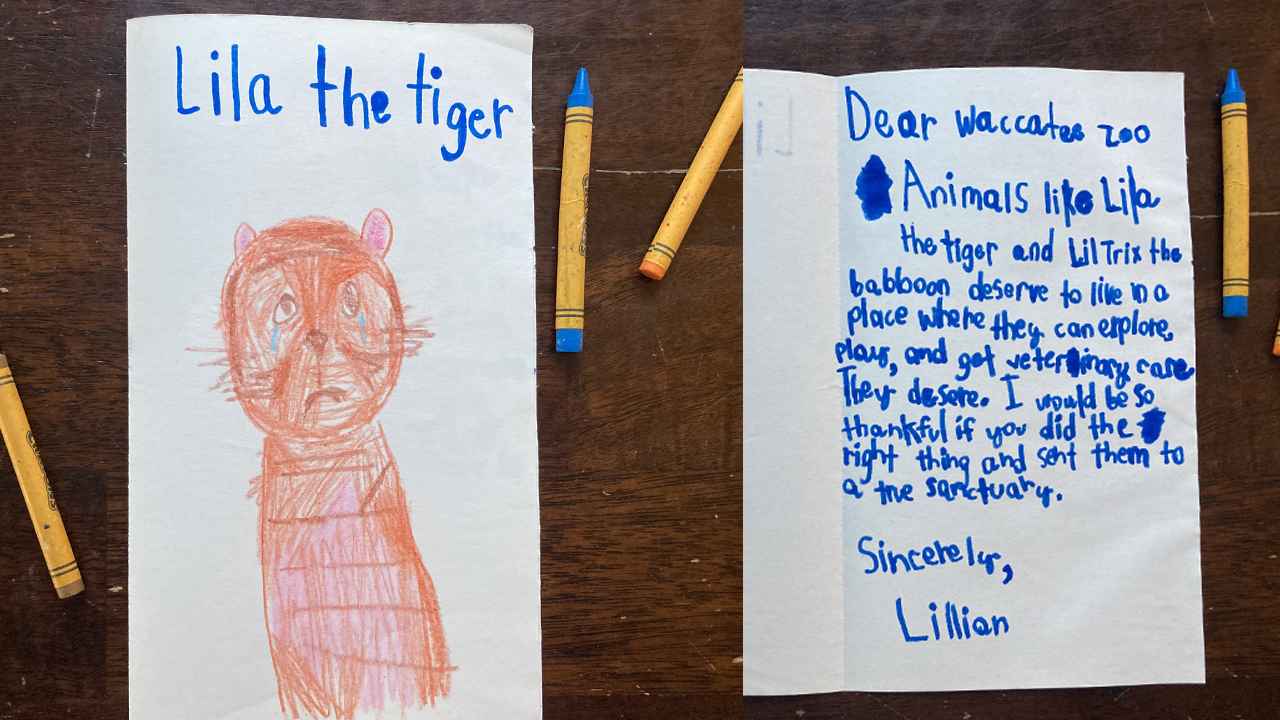 Lila the tiger
Dear Waccatee zoo
Animals like Lila
the tiger and Lil Trix the
babboon deserve to live in a
place where they can explore,
play, and get veterinary care
They desere. I would be so
thankful if you did the
right thing and sent them to
a true sanctuary.
Sincerely,
Lillian